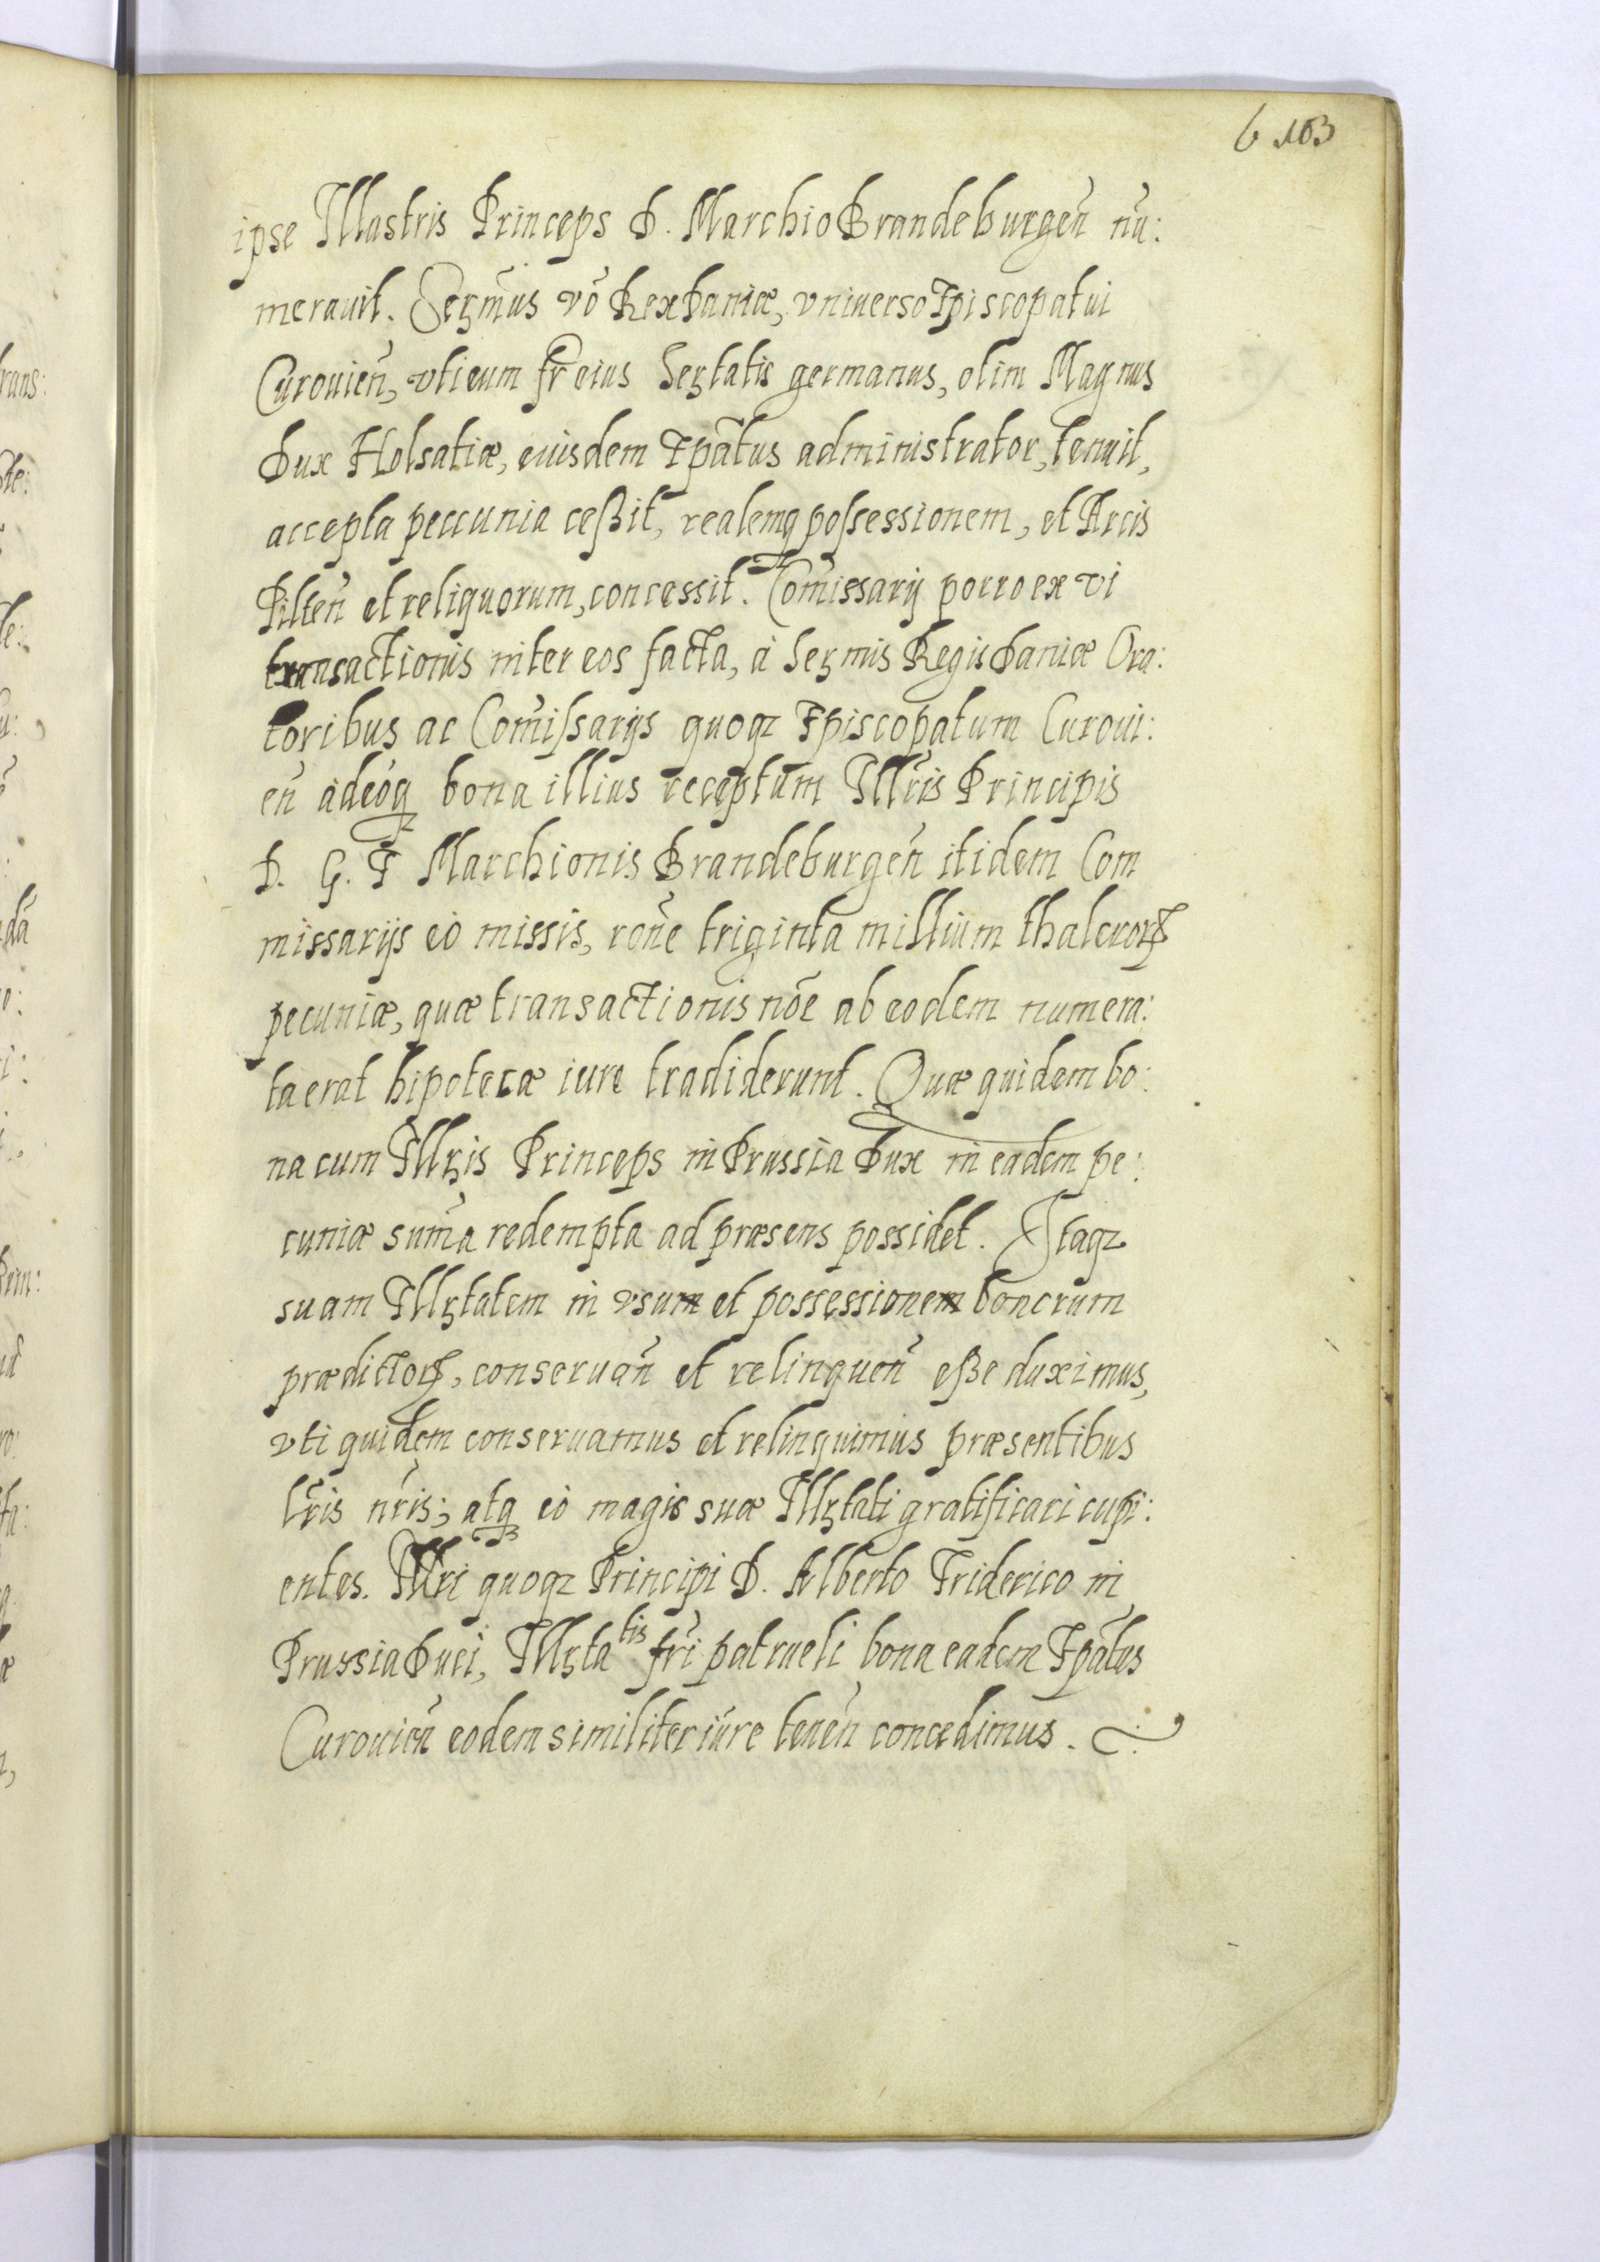 6 103
ipse Illustris Princeps D. Marchio Brandeburgeñ nu:
merauit. Serm̃us vō Rex Daniæ, vniuerso Episcopatui
Curouieñ, vti eum fr̃ eius Sertatis germanus, olim Magnus
Dux Holsatiæ, eiusdem Ep̃atus administrator, tenuit,
accepta peccunia ceßit, realemq possessionem, et Arcis
Pilteñ et reliquorum, concessit. Com̃issarij porro ex vi
transactionis inter eos facta, à Sermis Regis Daniæ Ora:
toribus ac Com̃issarijs quoqꝫ Episcopatum Curoui:
eñ adeóq bona illius receptum Illr̃is Principis
D. G. F Marchionis Brandeburgeñ itidem Com
missarijs eò missis, roñe triginta millium thalerorꝝ
pecuniæ, quæ transactionis nõe ab eodem numera:
ta erat hipotecæ iure tradiderunt. Quæ quidem bo:
na cum Illris Princeps in Prussia Dux in eadem pe:
cuniæ sum̃a redempta ad præsens possidet. Itaqꝫ
suam Illrtatem in vsum et possessionem bonorum
prædictorꝝ, conseruañ et relinqueñ eße duximus,
vti quidem conseruamus et relinquimus præsentibus
lr̃is nr̃is; atq eò magis suæ Illrtati gratificari cupi:
entes. Illri quoqꝫ Principi D. Alberto Friderico in
Prussia Duci, Illrtatis fr̃i patrueli bona eadem Ep̃atus
Curouieñ eodem similiter iure teneñ concedimus.